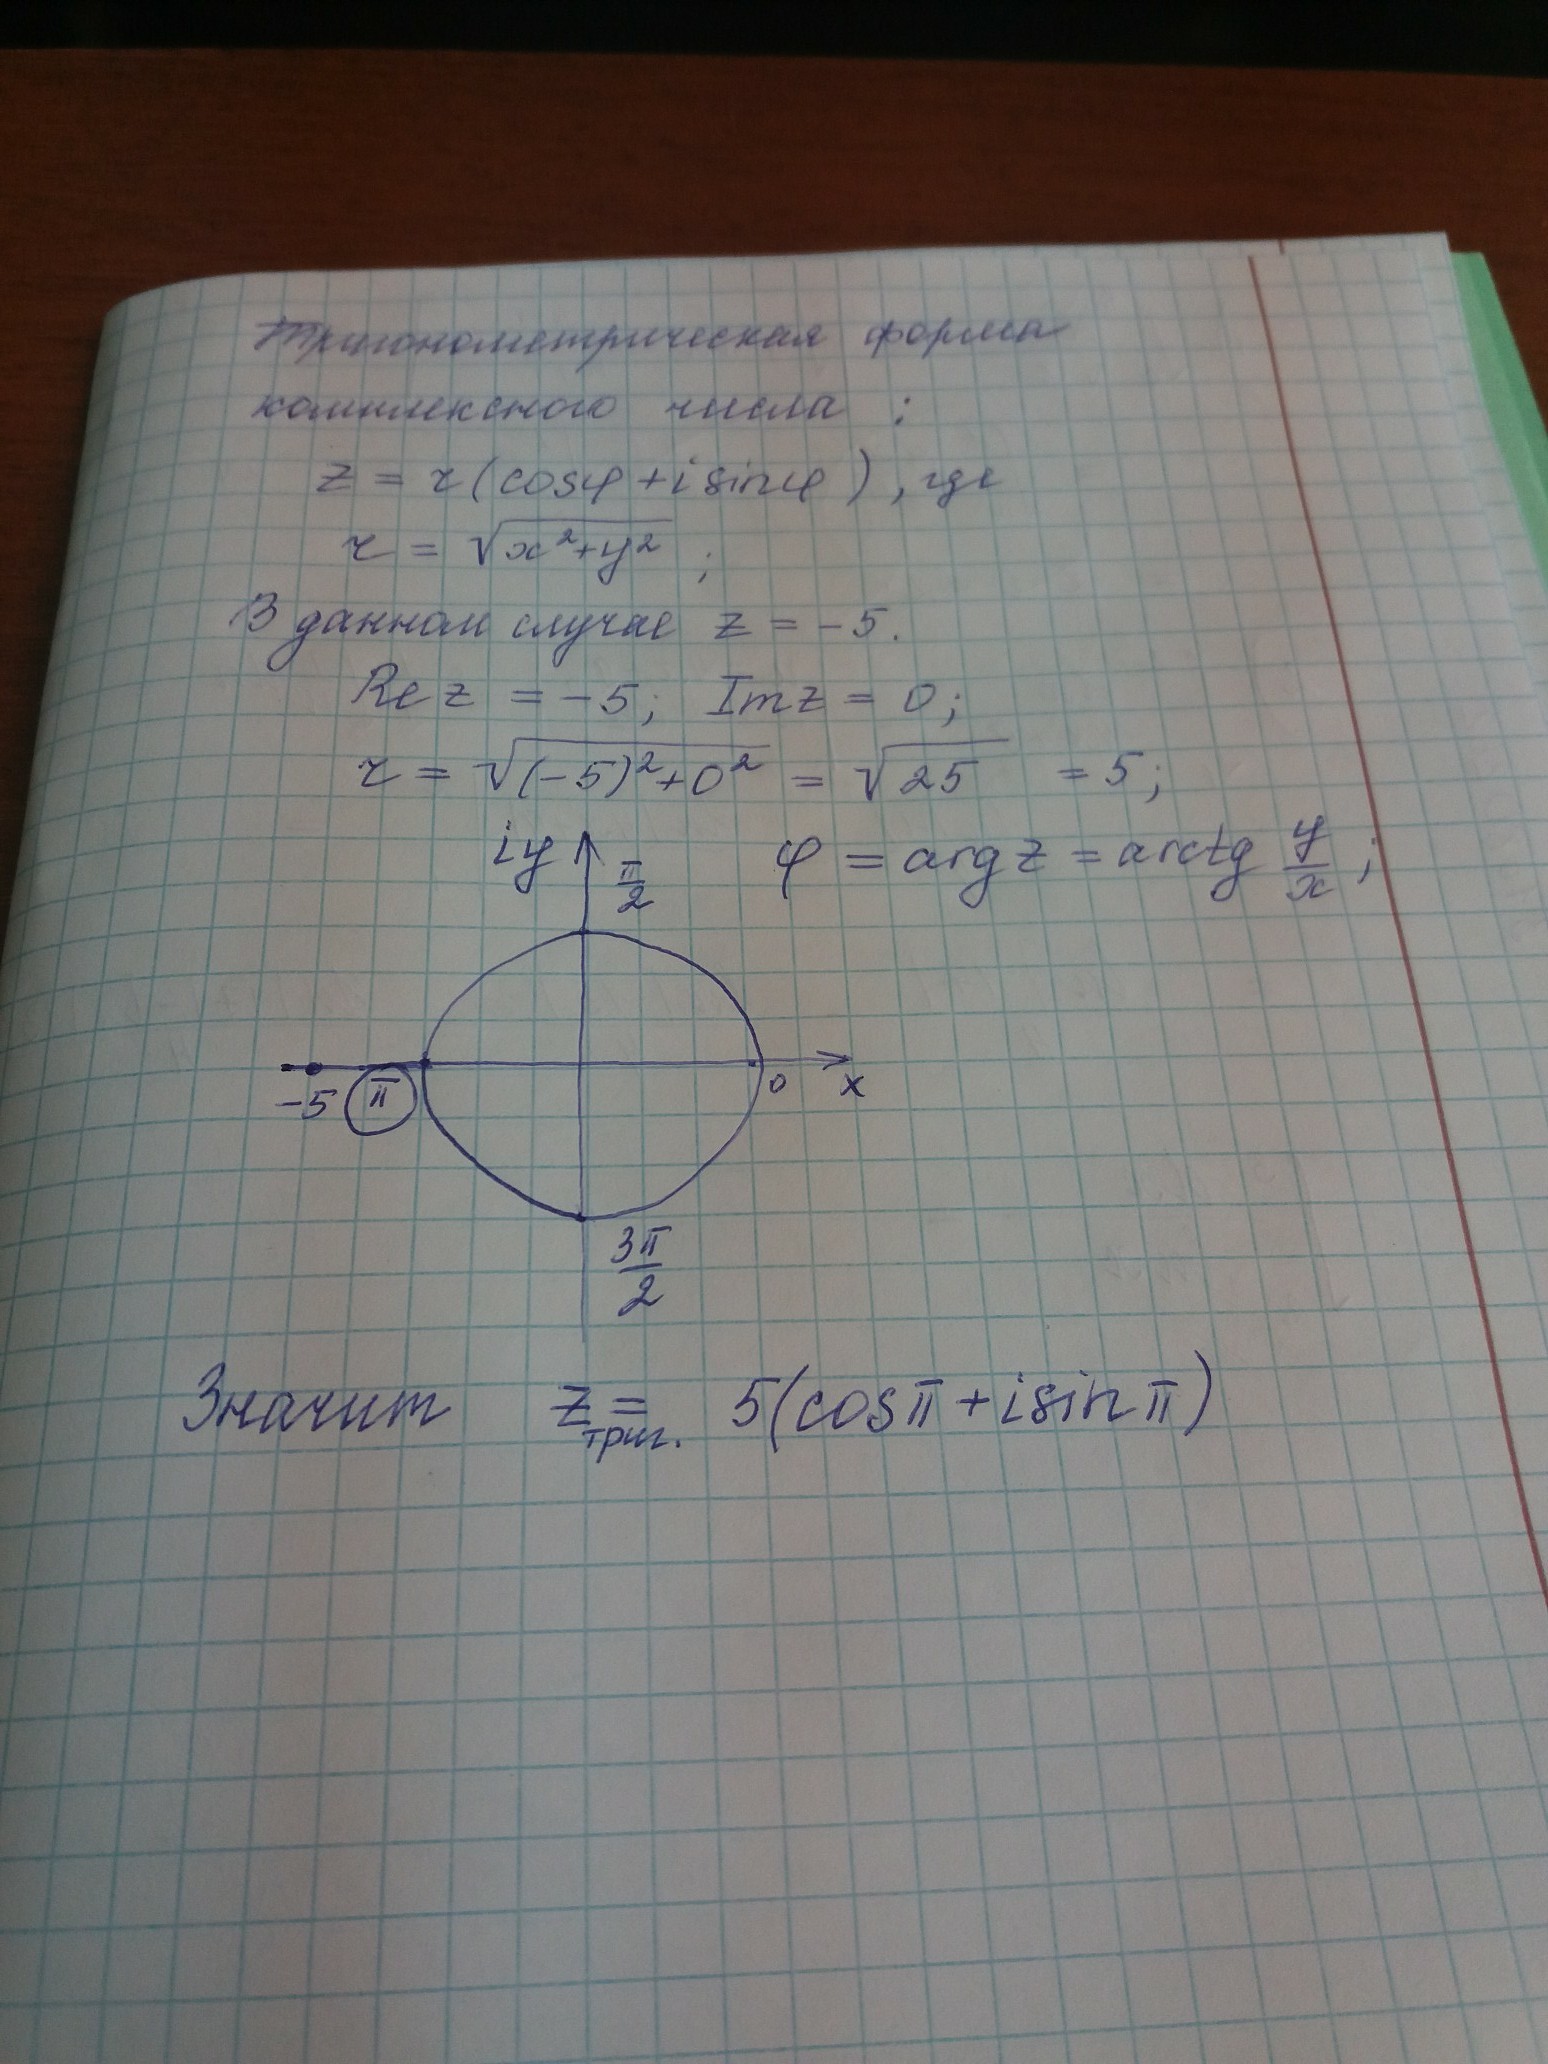 Тригонометрическая форма
комплексного числа :
z = r (cosφ + i sinφ) , где
r = √x²+y² ;
В данном случае z = -5.
Re z = -5; Im z = 0;
r = √(-5)²+0² = √25 = 5;
iy π/2 φ = arg z = arctg y/x ;
-5 π 0 x
3π/2
Значит z триг. = 5(cosπ + i sinπ)